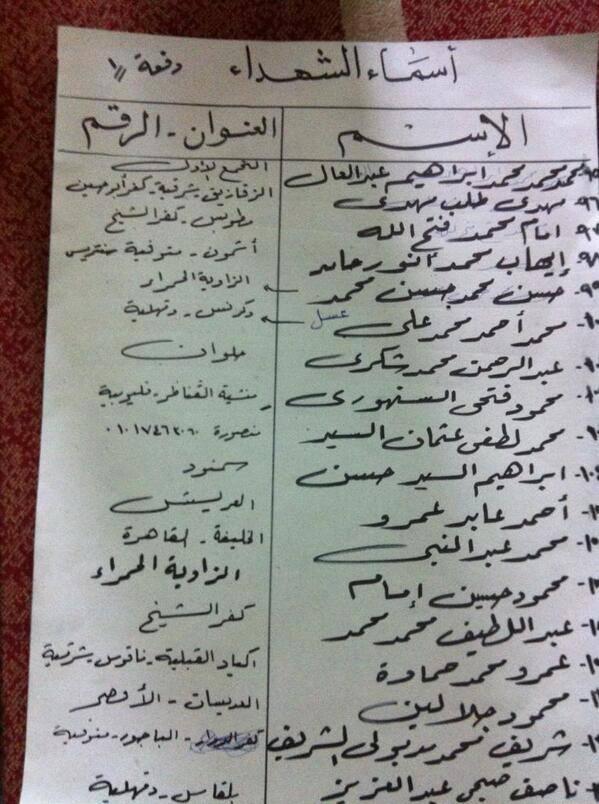 أسماء الشهداء دفعة ١
الإسم العنوان - الرقم
محمد محمد محمد ابراهيم عبد العال التجمع الأول
٩٦- مهدى طلب مهدى الزقازيق - شرقية - كفر أبو حسين
٩٧- امام محمد فتح الله مطوبس - كفر الشيخ
٩٨- إيهاب محمد أنور حامد أشمون - منوفية سنتريس
٩٩- حسن محمد حسن محمد الزاوية الحمراء
محمد أحمد محمد على غسل دكرنس - دقهلية
عبد الرحمن محمد شكرى حلوان
محمود فتحى السنهورى منشية القناطر - قليوبية
محمد لطفى عثمان السيد منصورة
١٠٤- ابراهيم السيد حسن سمنود
أحمد عابد عمرو العريش
محمد عبد النبى الخليفة - القاهرة
محمود حسين إمام الزاوية الحمراء
عبد اللطيف محمد محمد كفر الشيخ
عمرو محمد حمادة اكياد القبلية - فاقوس - شرقية
محمود جلال لبن العديسات - الأقصر
شريف محمد مدبولى الشريف الباجور - منوفية
ناصف صبحى عبد العزيز بلقاس - دقهلية